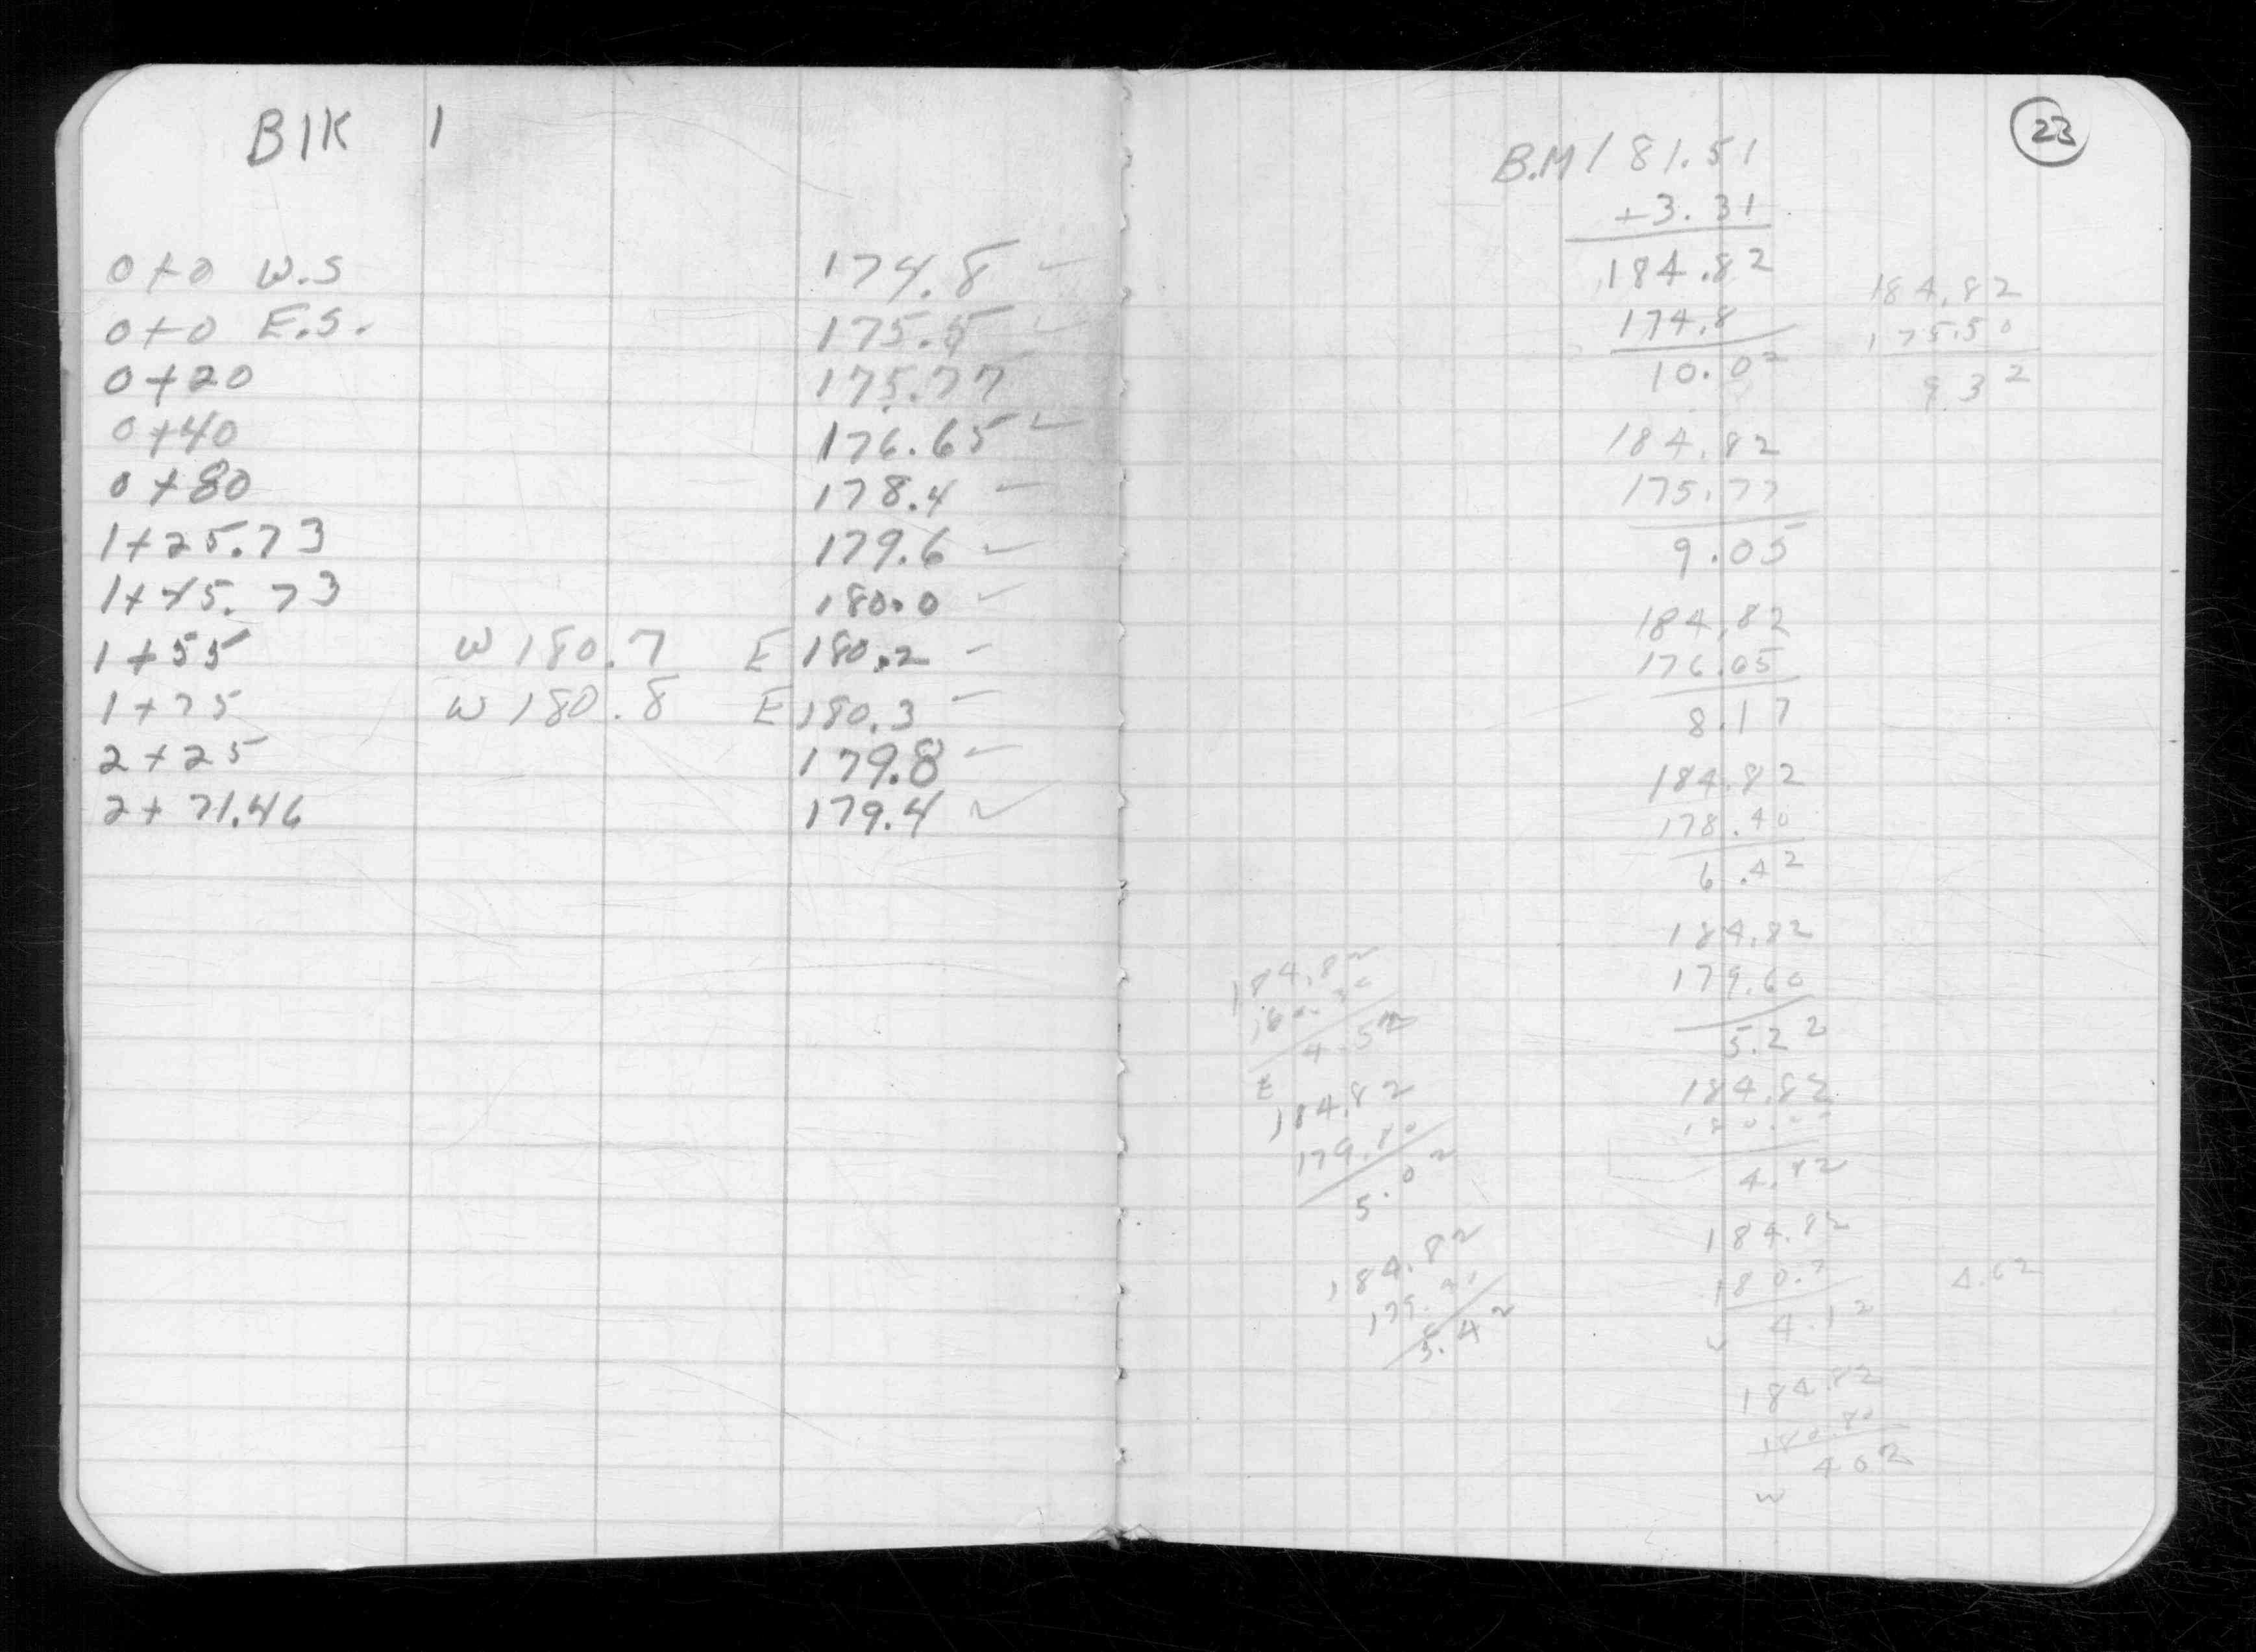 BlK 1
0+0 W.S 174.8 ✓
0+0 E.S. 175.5 ✓
0+20 175.77
0+40 176.65 ✓
0+80 178.4 -
1+25.73 179.6 ✓
1+45.73 180.0 ✓
1+55 W 180.7 E 180.2 -
1+75 W 180.8 E 180.3 -
2+25 179.8 -
2+71.46 179.4 ✓
23
B.M 181.51
+3.31
184.82
174.8
10.02
184.82
175.50
9.32
184.82
175.77
9.05
184.82
176.65
8.17
184.82
178.40
6.42
184.82
179.60
5.22
184.82
180.00
4.82
184.82
180.7
4.12
W
4.62
184.82
180.80
402
W
184.82
4.52
E
184.82
179.80
5.02
184.82
5.42